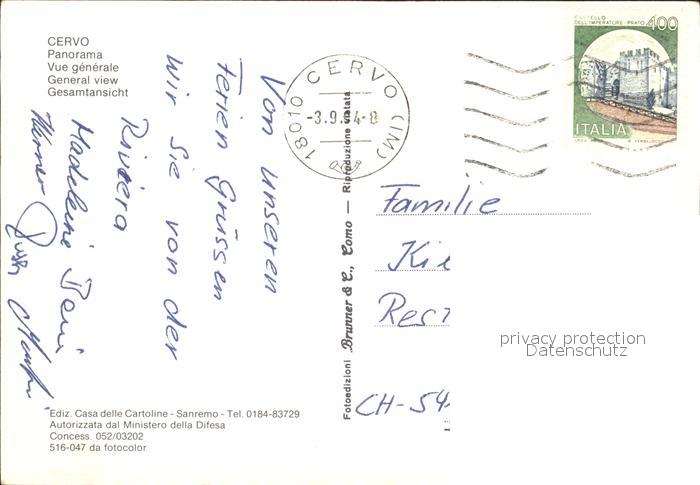 CERVO
Panorama
Vue générale
General view
Gesamtansicht
Von unseren
Ferien Grüssen
wir Sie von der
Riviera
Madeleine
Werner
18010 CERVO (IM)
-3.9.
CASTELLO
DELL'IMPERATORE - PRATO 400
ITALIA
Familie
Ki
Res
CH-54
Fotoedizioni Brunner & C., Como — Riproduzione vietata
privacy protection
Datenschutz
Ediz. Casa delle Cartoline - Sanremo - Tel. 0184-83729
Autorizzata dal Ministero della Difesa
Concess. 052/03202
516-047 da fotocolor